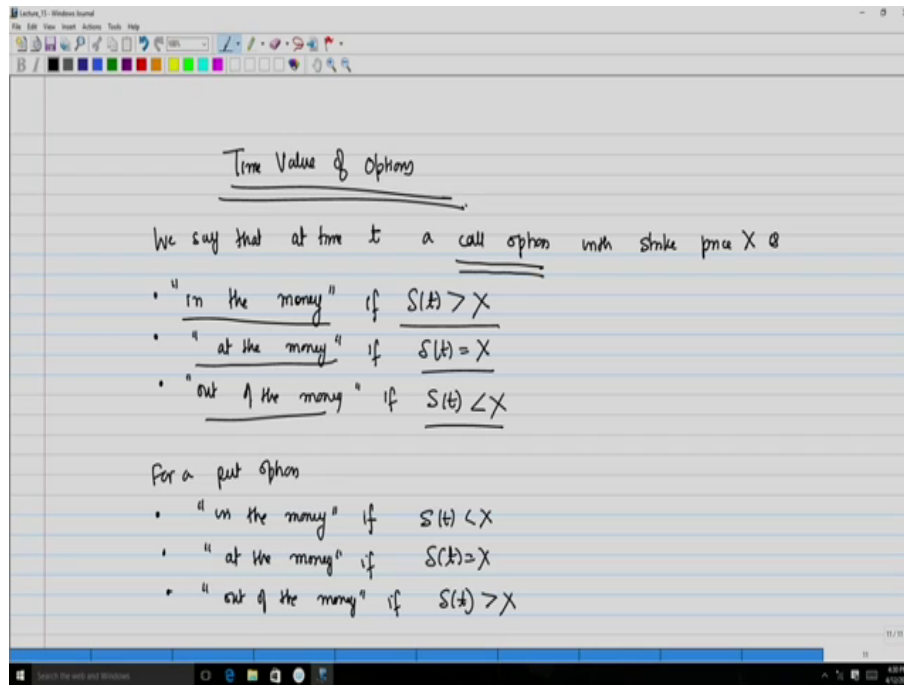 Lecture_15 - Windows Journal
File Edit View Insert Actions Tools Help
B I
Time Value of Options
We say that at time t a call option with strike price X is
• "in the money" if S(t) > X
• "at the money" if S(t) = X
• "out of the money" if S(t) < X
For a put option
• "in the money" if S(t) < X
• "at the money" if S(t) = X
• "out of the money" if S(t) > X
11 / 11
11
Search the web and Windows
4:30 PM